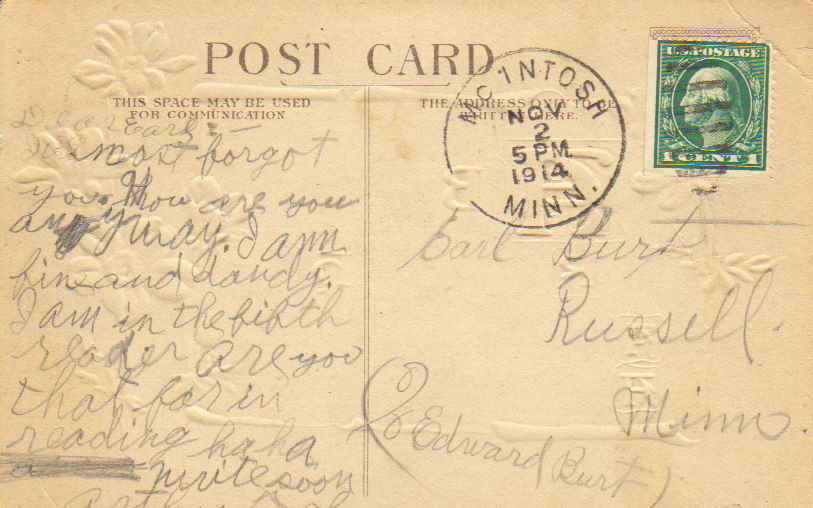 POST CARD
THIS SPACE MAY BE USED
FOR COMMUNICATION
THE ADDRESS ONLY TO BE
WRITTEN HERE.
U.S. POSTAGE
1 CENT 1
MCINTOSH
NOV
2
5 PM
1914
MINN.
Dear Earl:-
almost forgot
you. How are you
any way. I am
fine and dandy.
I am in the fifth
reader are you
that far in
reading haha
write soon
Earl Burt
Russell.
Minn.
% Edward Burt)